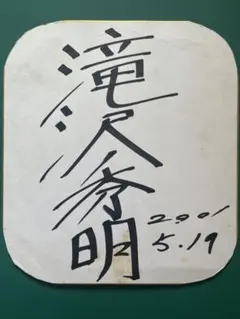 滝沢秀明
2001
5.19